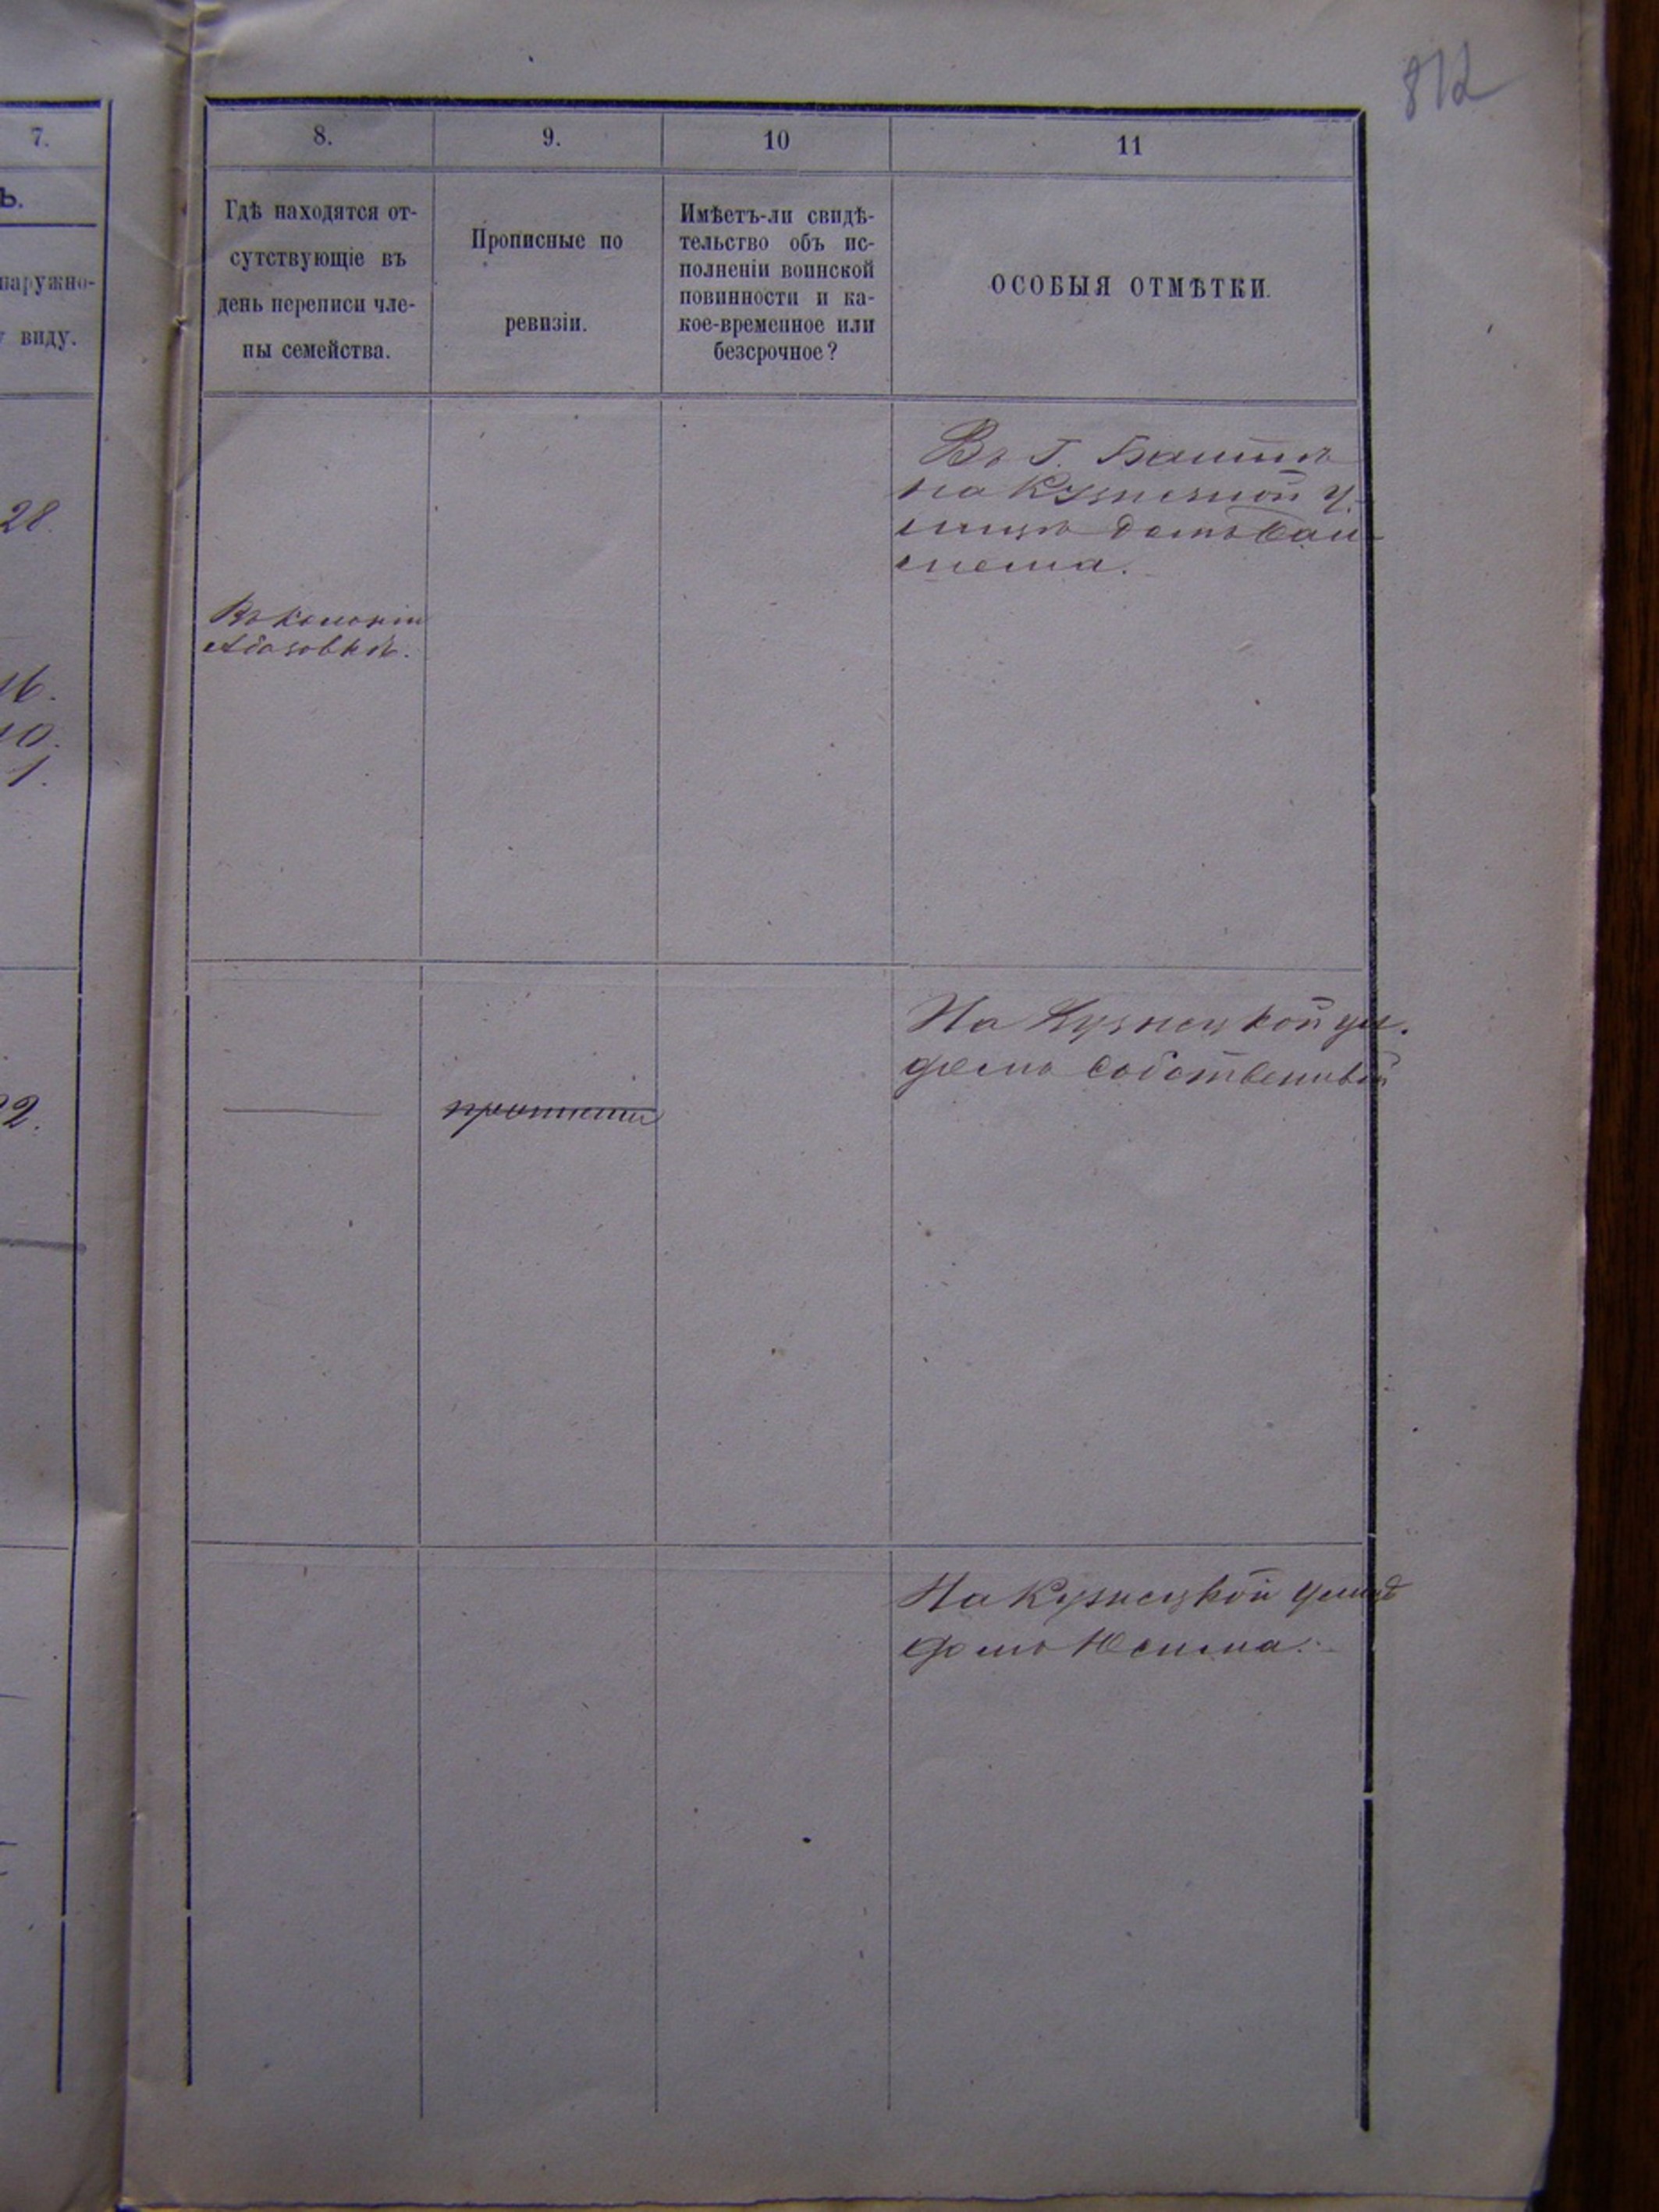 812
7.
ь.
наружно-
у виду.
28.
16.
10.
1.
22.
8.
9.
10
11
Гдѣ находятся от-
сутствующіе въ
день переписи чле-
ны семейства.
Прописные по
ревизіи.
Имѣетъ-ли свидѣ-
тельство объ ис-
полненіи воинской
повинности и ка-
кое-временное или
безсрочное?
ОСОБЫЯ ОТМѢТКИ.
Въ Г. Балтѣ
на Кузнечной У-
лицѣ домъ
Въ колоніи
Абазовкѣ.
На Кузнецкой ул.
домъ собственный
На Кузнецкой улицѣ
домъ